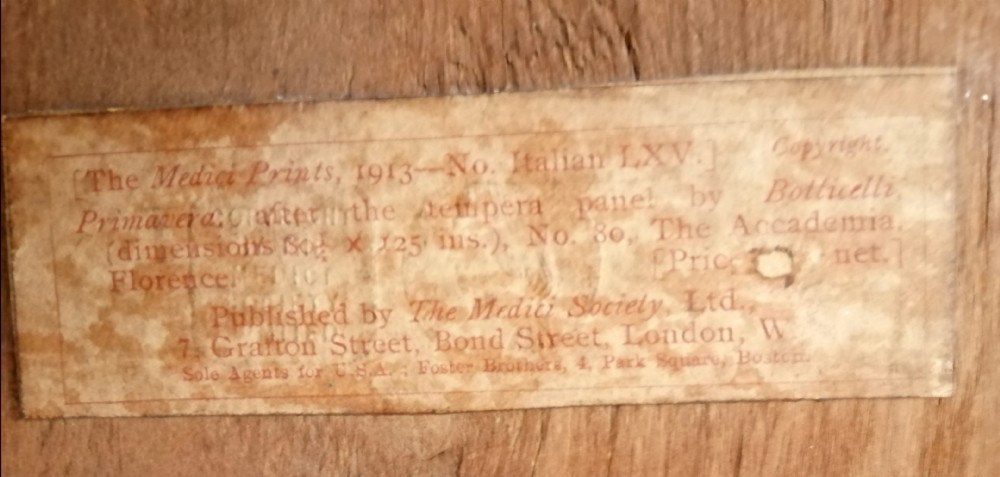 [The Medici Prints, 1913—No. Italian LXV.] Copyright.
Primavera: after the tempera panel by Botticelli,
(dimensions x 125 ins.), No. 80, The Accademia,
Florence. [Price net.]
Published by The Medici Society, Ltd.,
7, Grafton Street, Bond Street, London, W.
Sole Agents for U.S.A.: Foster Brothers, 4, Park Square, Boston.